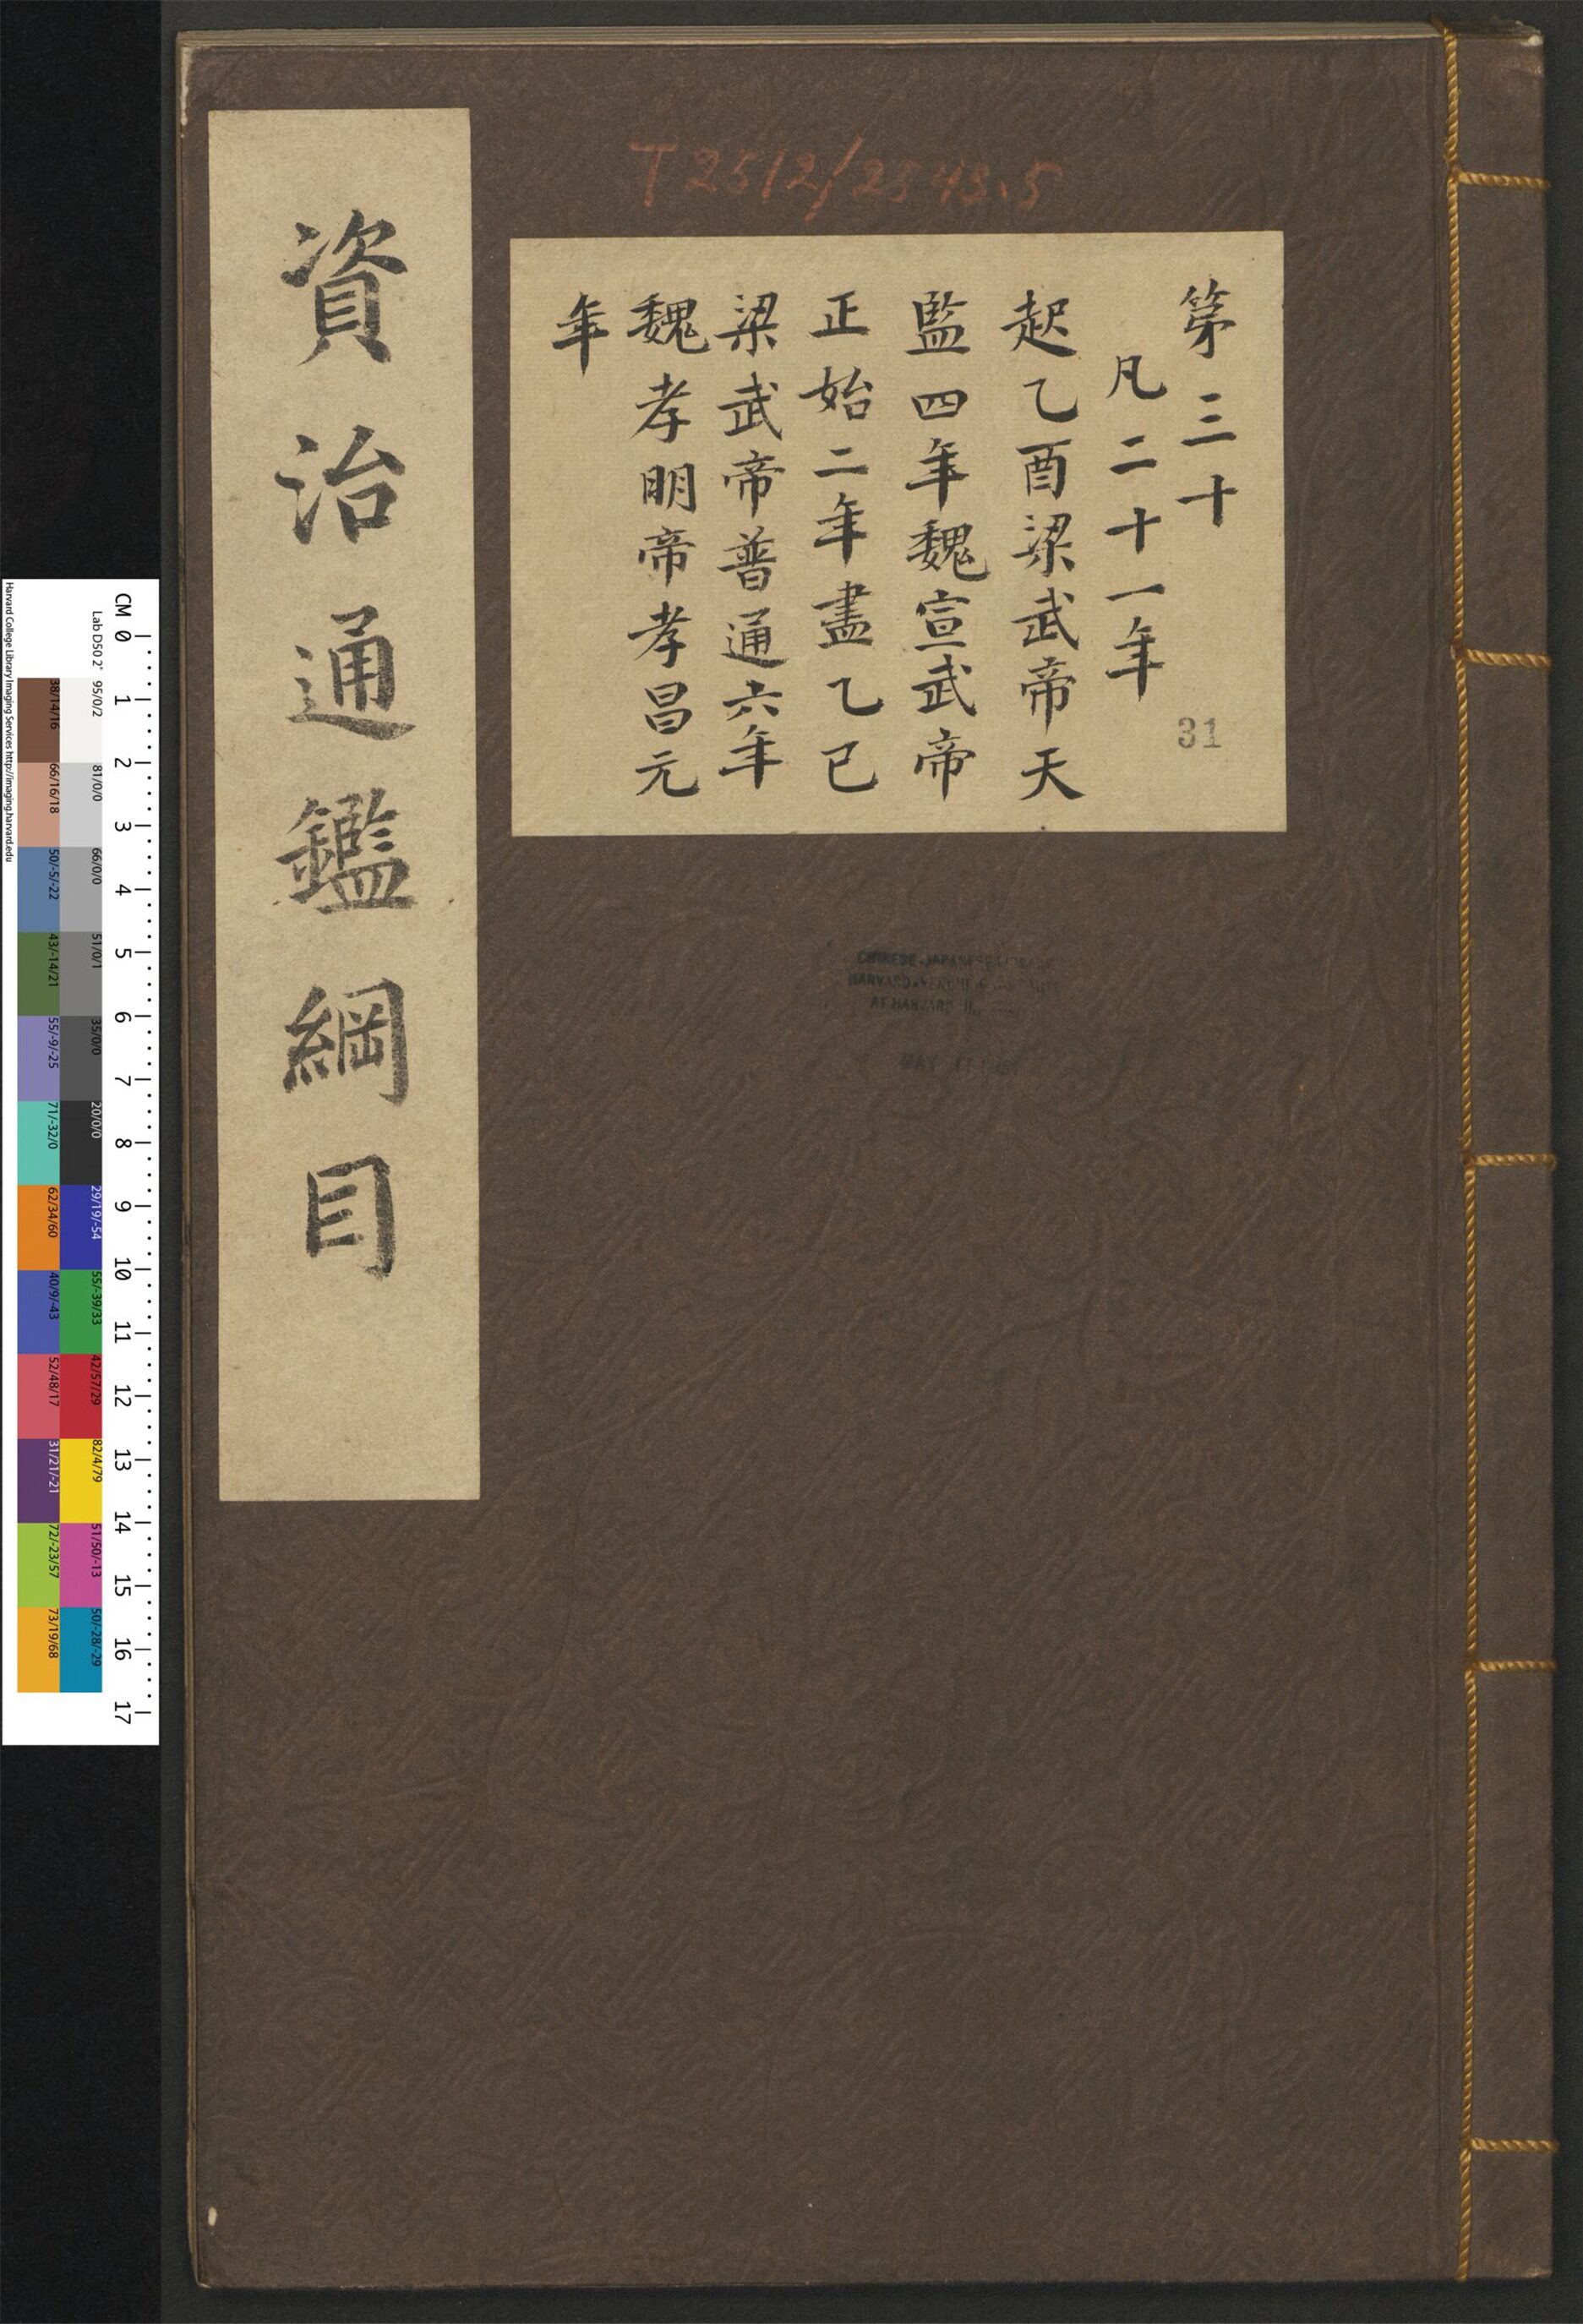 資治通鑑綱目
T2512/2543.5
第三十
凡二十一年
起乙酉梁武帝天
監四年魏宣武帝
正始二年盡乙巳
梁武帝普通六年
魏孝明帝孝昌元
年
31
CHINESE-JAPANESE
HARVARD-YENCHING
AT HARVARD
MAY
CM 0 1 2 3 4 5 6 7 8 9 10 11 12 13 14 15 16 17
Lab D50 2°
95/0/2 81/0/0 66/0/0 51/0/1 35/0/0 20/0/0 29/19/-54 55/-39/33 42/57/29 82/4/79 51/50/-13 50/-28/-29
38/14/16 66/16/18 50/-5/-22 43/-14/21 55/-9/-25 71/-32/0 62/34/60 40/9/-43 52/48/17 31/21/-21 72/-23/57 73/19/68
Harvard College Library Imaging Services http://imaging.harvard.edu